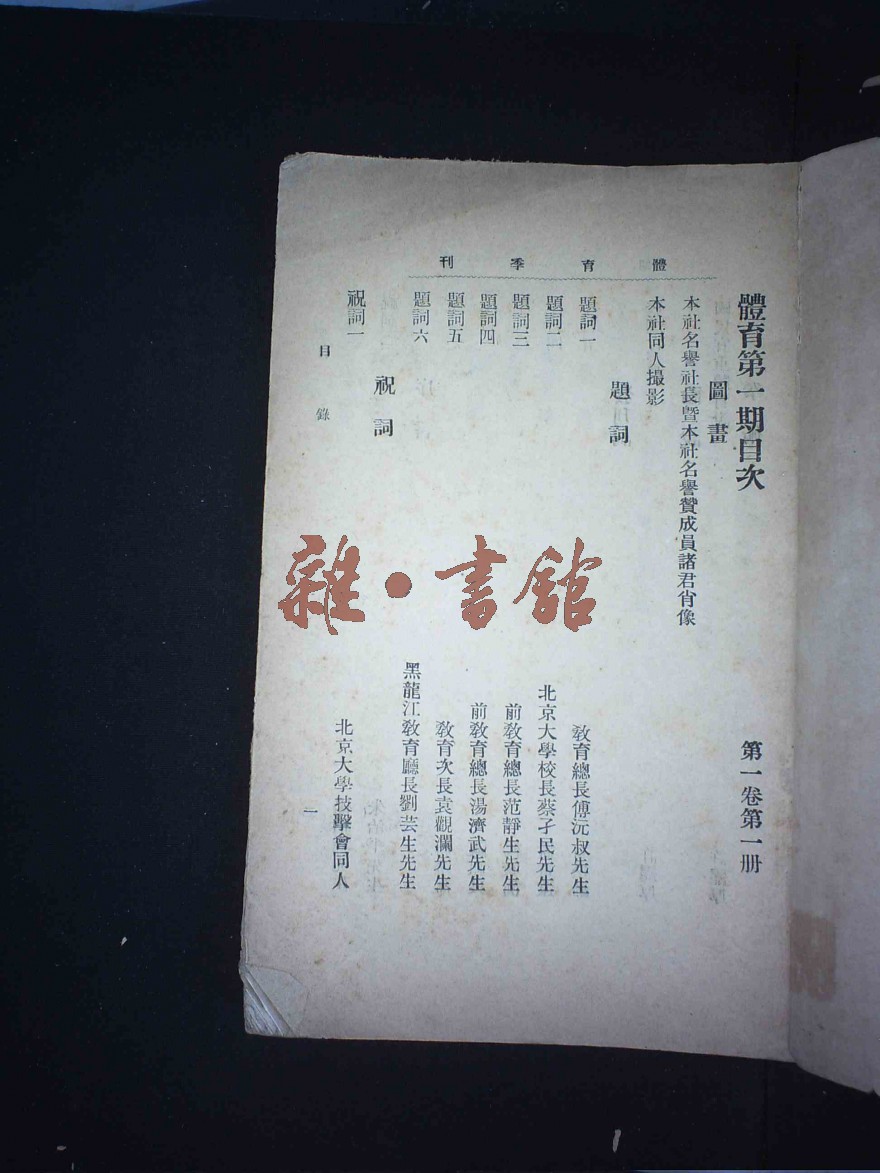 體育季刊
體育第一期目次
第一卷第一册
圖畫
本社名譽社長暨本社名譽贊成員諸君肖像
本社同人撮影
題詞
題詞一
教育總長傅沅叔先生
題詞二
北京大學校長蔡孑民先生
題詞三
前教育總長范靜生先生
題詞四
前教育總長湯濟武先生
題詞五
教育次長袁觀瀾先生
題詞六
黑龍江教育廳長劉芸生先生
祝詞
祝詞一
北京大學技擊會同人
目錄
一
雜·書館